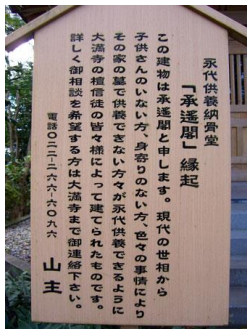 永代供養納骨堂
「承遙閣」縁起
この建物は承遙閣と申します。現代の世相から
子供さんのいない方、身寄りのない方、色々の事情により
その家の墓で供養できない方々が永代供養できるように
大満寺の檀信徒の皆々様によって建てられたものです。
詳しく御相談を希望する方は大満寺まで御連絡下さい。
電話〇二二-二六六-六〇九六
山主